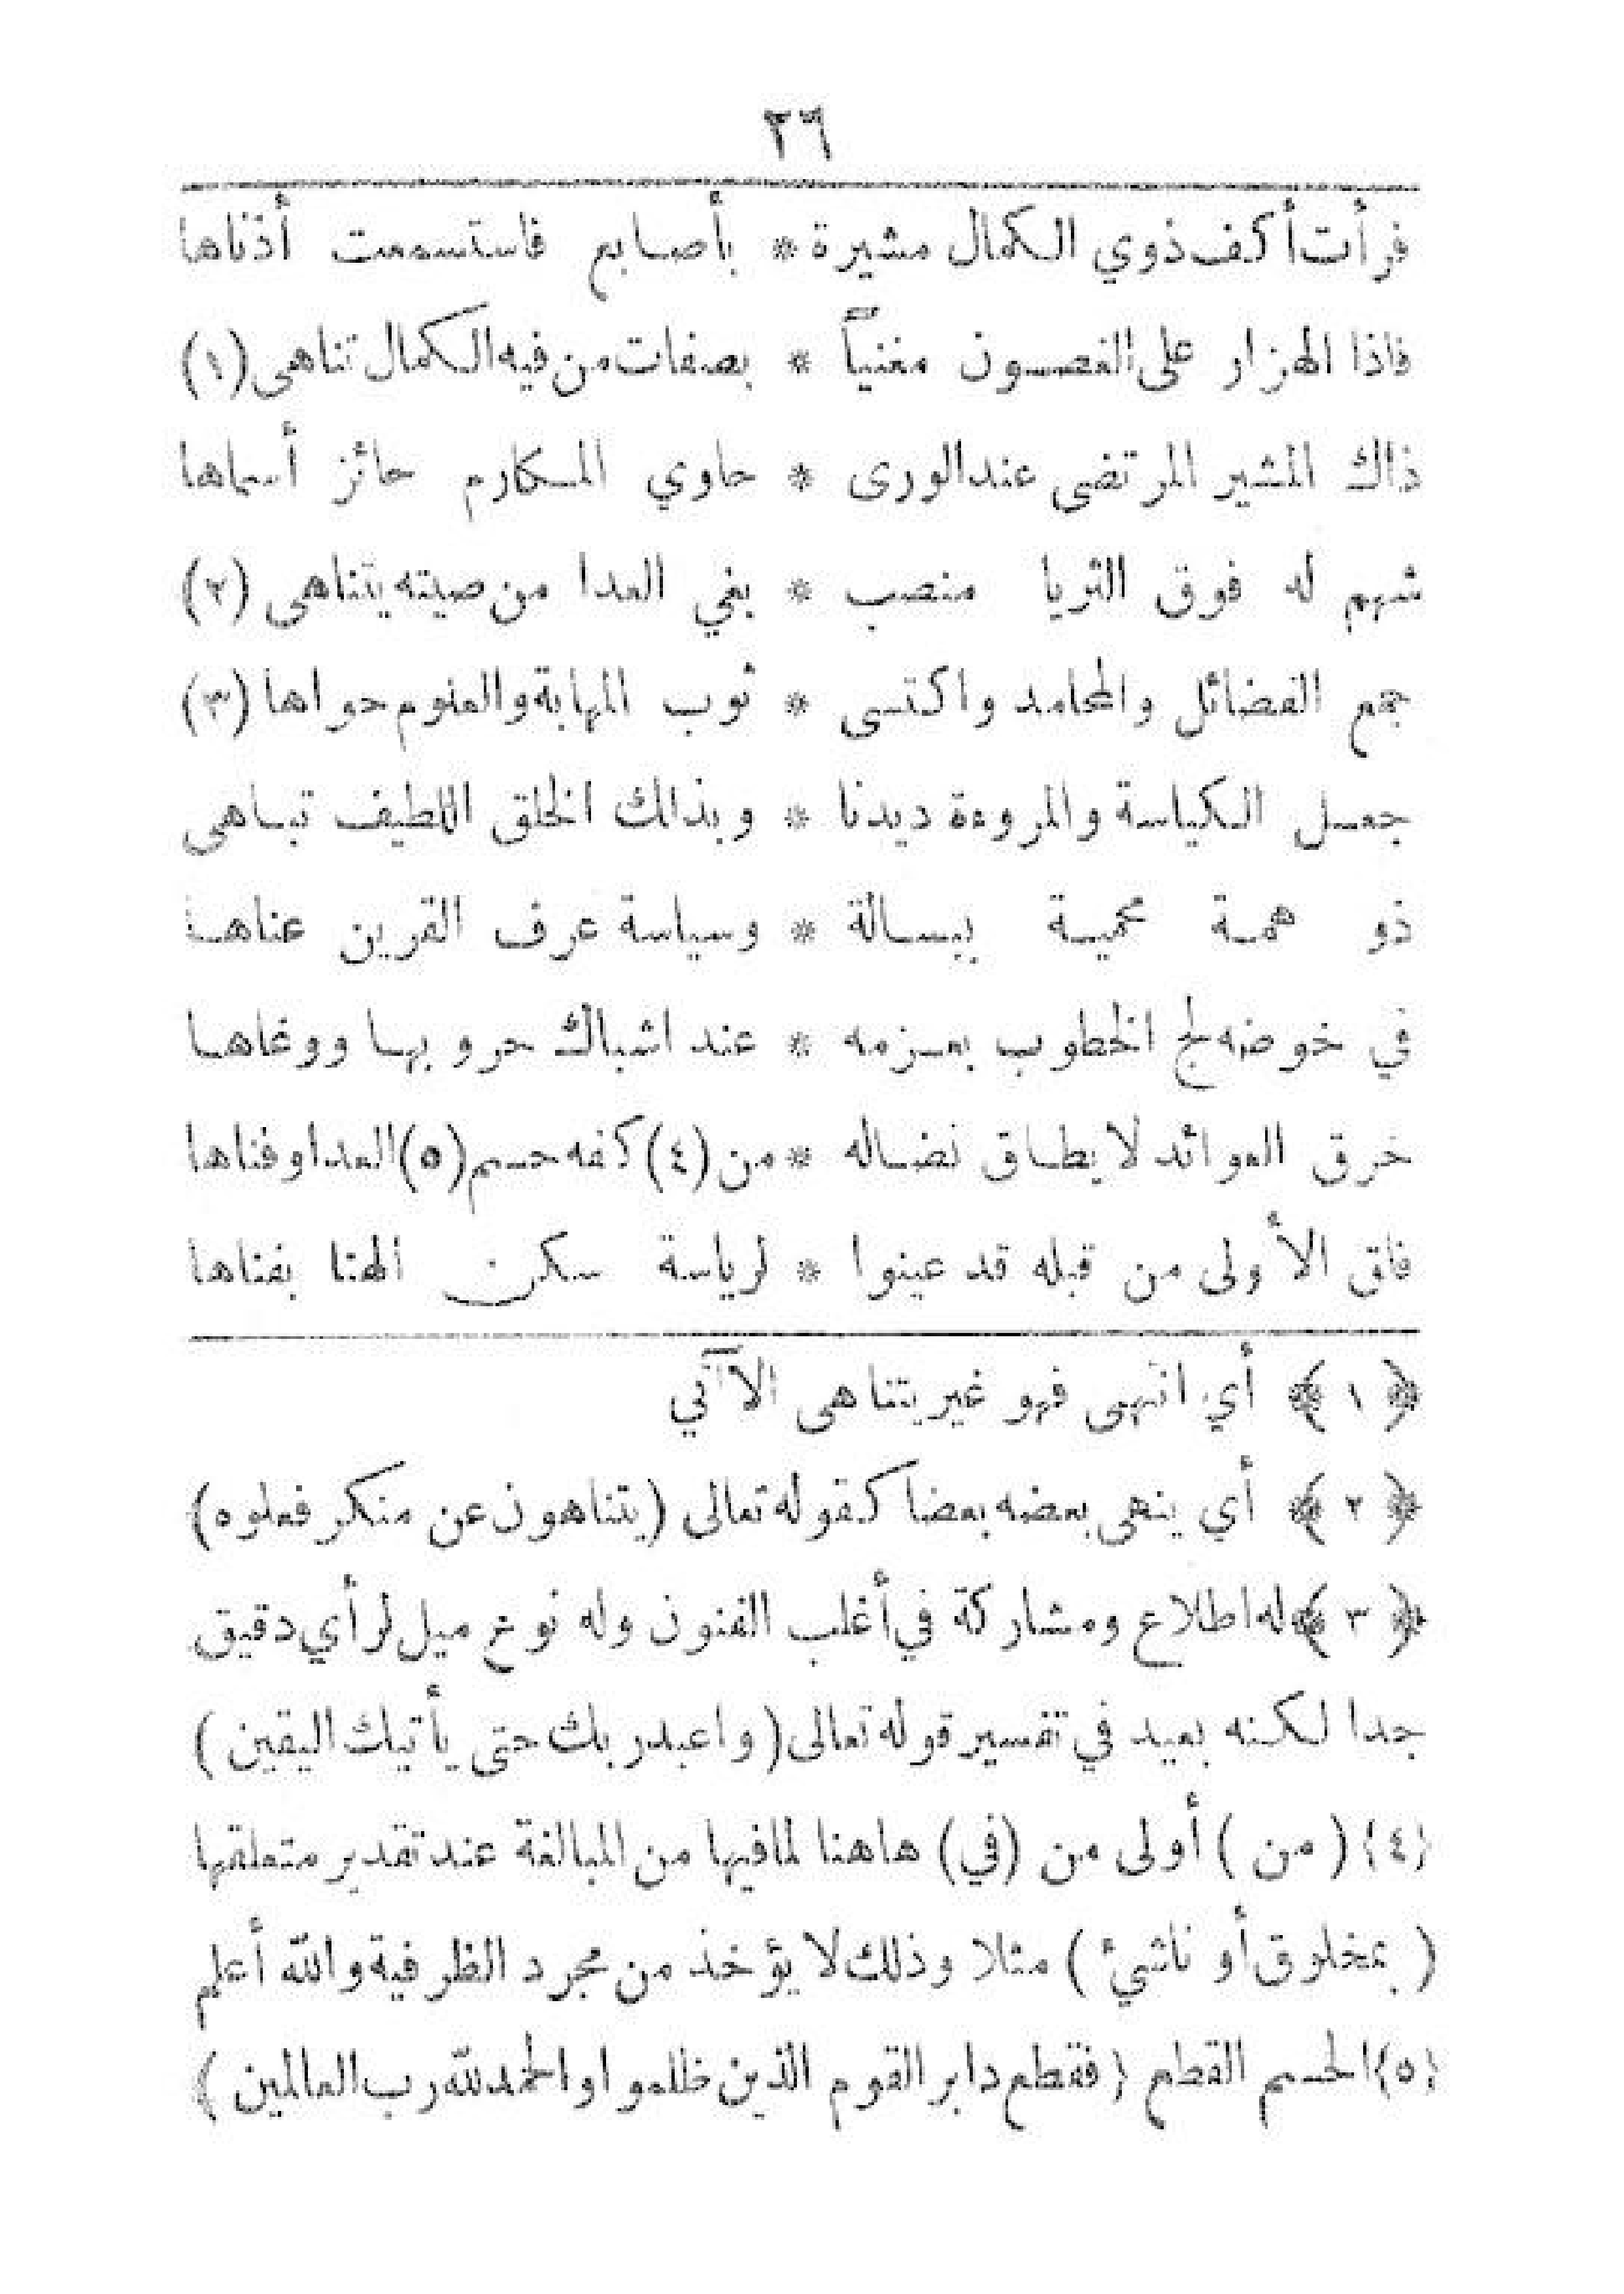 ٢٦
فرأت أكف ذوي الكمال مشيرة * بأصابع فاستسمعت أذناها
فاذا الهزار على الغصون مغنياً * بصفات من فيه الكمال تناهى (١)
ذاك المشير المرتضى عند الورى * حاوي المكارم حائز أسماها
شهم له فوق الثريا منصب * بغي العدا من صيته يتناهى (٢)
جمع الفضائل والمحامد واكتسى * ثوب المهابة والعلوم حواها (٣)
جعل الكياسة والمروءة ديدنا * وبذالك الخلق اللطيف تباهى
ذو همة محمية ببسالة * وسياسة عرف القرين عناها
في خوضه لج الخطوب بعزمه * عند اشباك حروبها ووغاها
خرق العوائد لا يطاق نضاله * من (٤) كفه حسم (٥) العدا وفناها
فاق الأولى من قبله قد عينوا * لرياسة سكن الهنا بفناها
﴿ ١ ﴾ أي انتهى فهو غير يتناهى الآتي
﴿ ٢ ﴾ أي ينهى بعضه بعضا كقوله تعالى (يتناهون عن منكر فعلوه)
﴿ ٣ ﴾ له اطلاع ومشاركة في أغلب الفنون وله نوع ميل لرأي دقيق
جدا لكنه بعيد في تفسير قوله تعالى (واعبد ربك حتى يأتيك اليقين)
{٤} (من) أولى من (في) هاهنا لما فيها من المبالغة عند تقدير متعلقها
(بمخلوق أو ناشئ) مثلا وذلك لا يؤخذ من مجرد الظرفية والله أعلم
{٥} الحسم القطع (فقطع دابر القوم الذين ظلموا والحمد لله رب العالمين)